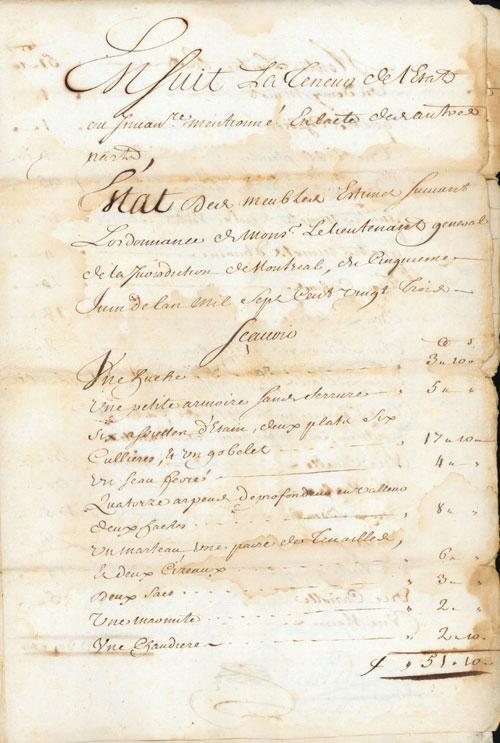 Ensuit La teneur de l'Etat
ou Inuanre. mentionné En lacte des autres
parts,
Estat Des meubles Estimés suiuant
Lordonnance de Monsr. Le lieutenant general
de la Jurisdiction de Montreal, du Cinquieme
Juin de lan Mil Sept Cent vingt Trois
Scauoir
Vne huche " 3 " 10 "
Vne petite armoire sans serrure " 5 " "
Six assiettes d'Etain, deux plats six
Cuillieres, & vn gobelet " 17 " 10
Vn seau ferré " 4 " "
Quatorze arpens de profondeur
deux haches " 8 " "
Vn marteau Vne paire de Tenailles,
Et deux Cizeaux " 6 "
Deux Sacs " 3 "
Vne marmite " 2 " "
Vne Chaudiere " 2 " 10
" 51 " 10